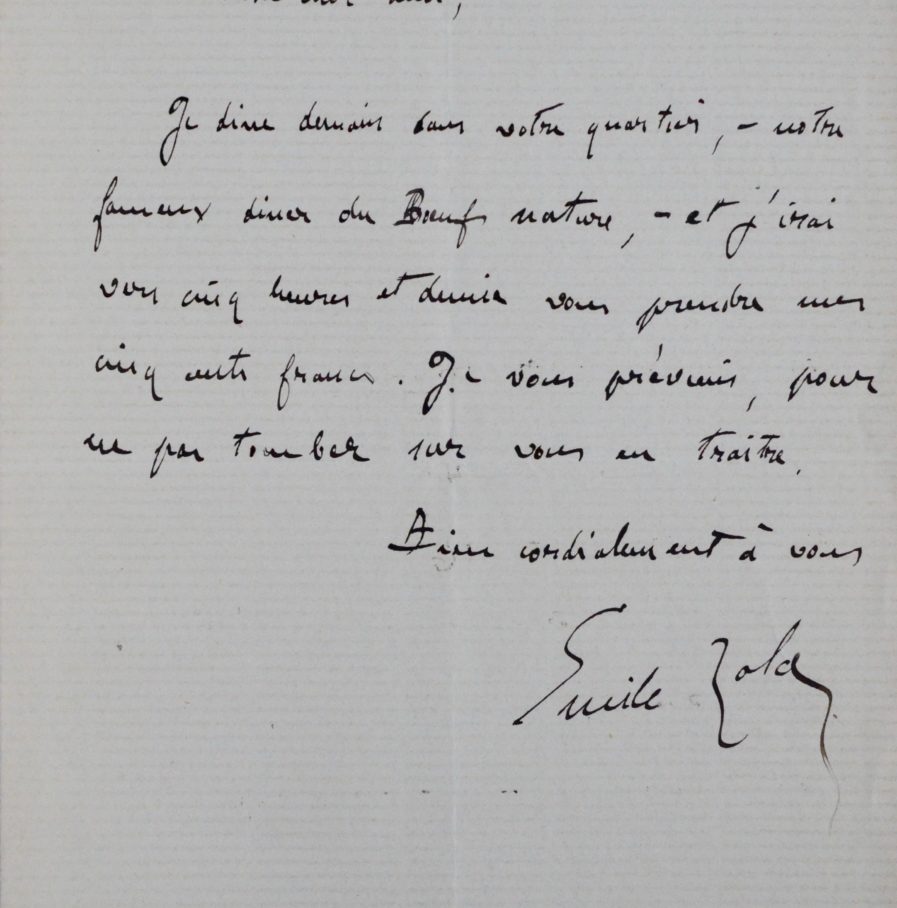 Je dine demain dans votre quartier, – notre
fameux diner du Bœuf nature, – et j'irai
vers cinq heures et demie vous prendre mes
cinq cents francs. Je vous préviens, pour
ne pas tomber sur vous en traître.
Bien cordialement à vous
Emile Zola